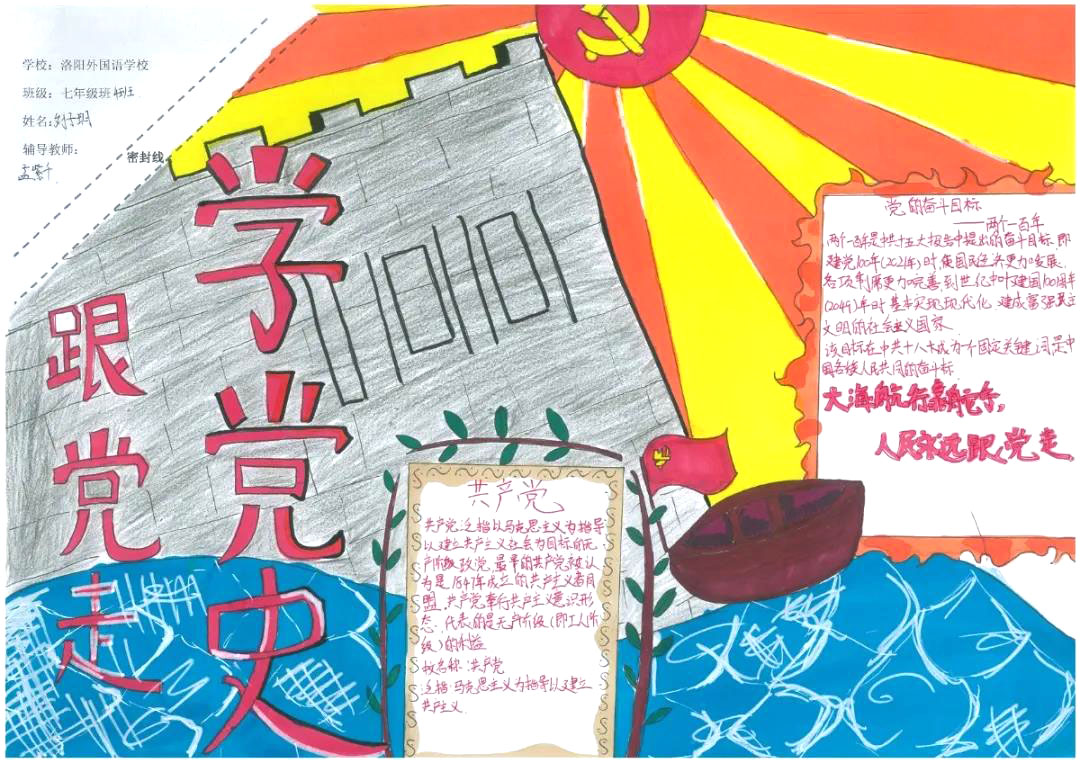 学校：洛阳外国语学校
班级：七年级班
姓名：
辅导教师：
密封线
学党史
跟党走
党的奋斗目标
——两个一百年
两个一百年是中共十五大报告中提出的奋斗目标，即
建党100年(2021年)时使国民经济更加发展，
各项制度更加完善，到世纪中叶建国100周年
(2049)年时基本实现现代化，建成富强民主
文明的社会主义国家
该目标在中共十八大成为一个固定关键词，是中
国各族人民共同的奋斗标
大海航行靠舵手，
人民永远跟党走。
共产党
共产党，泛指以马克思主义为指导
以建立共产主义社会为目标的无
产阶级政党，最早的共产党被认
为是1847年成立的共产主义者同
盟，共产党奉行共产主义意识形
态，代表的是无产阶级(即工人阶
级)的利益
政名称：共产党
泛指：马克思主义为指导以建立
共产主义